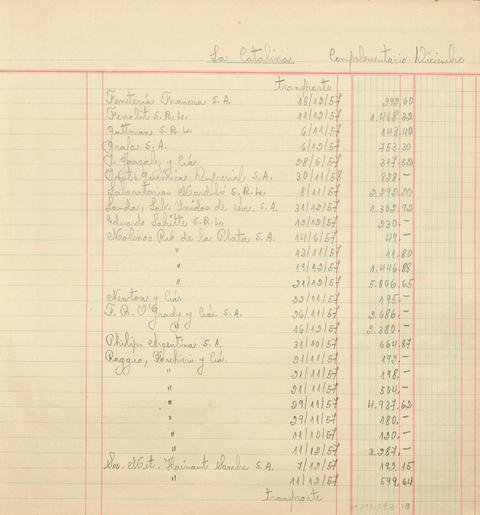 La Catalina Complementario Diciembre
transporte
Ferretería Francesa S.A. 18/12/57 292,60
Fenolit S.R.L. 11/12/57 1.468,32
Guttman S.R.L. 6/11/57 143,40
Grafa S.A. 6/12/57 753,30
J. Gonzalez y Cía. 28/6/57 317,52
Química S.A. 30/11/58 828,-
Laboratorios S.R.L. 8/11/57 2.292,20
Landa, Lab. Unidos de S.A. 31/12/57 1.302,92
Eduardo Lahitte S.R.L. 12/12/57 230,-
Molinos Rio de la Plata S.A. 14/6/57 49,-
" 13/11/57 11,80
" 19/12/57 1.446,88
" 21/12/57 5.806,65
Newton y Cía. 22/11/57 195,-
F. R. O'Grady y Cía. S.A. 26/11/57 2.686,-
" 16/12/57 2.380,-
Philips Argentina S.A. 31/10/57 664,87
Raggio, y Cía. 21/11/57 192,-
" 21/11/57 198,-
" 21/11/57 504,-
" 29/11/57 4.937,62
" 29/11/57 180,-
" 11/12/57 120,-
" 11/12/57 3.287,-
Soc. Mixt. Hainaut Sambre S.A. 7/12/57 192,15
" 11/12/57 599,64
transporte